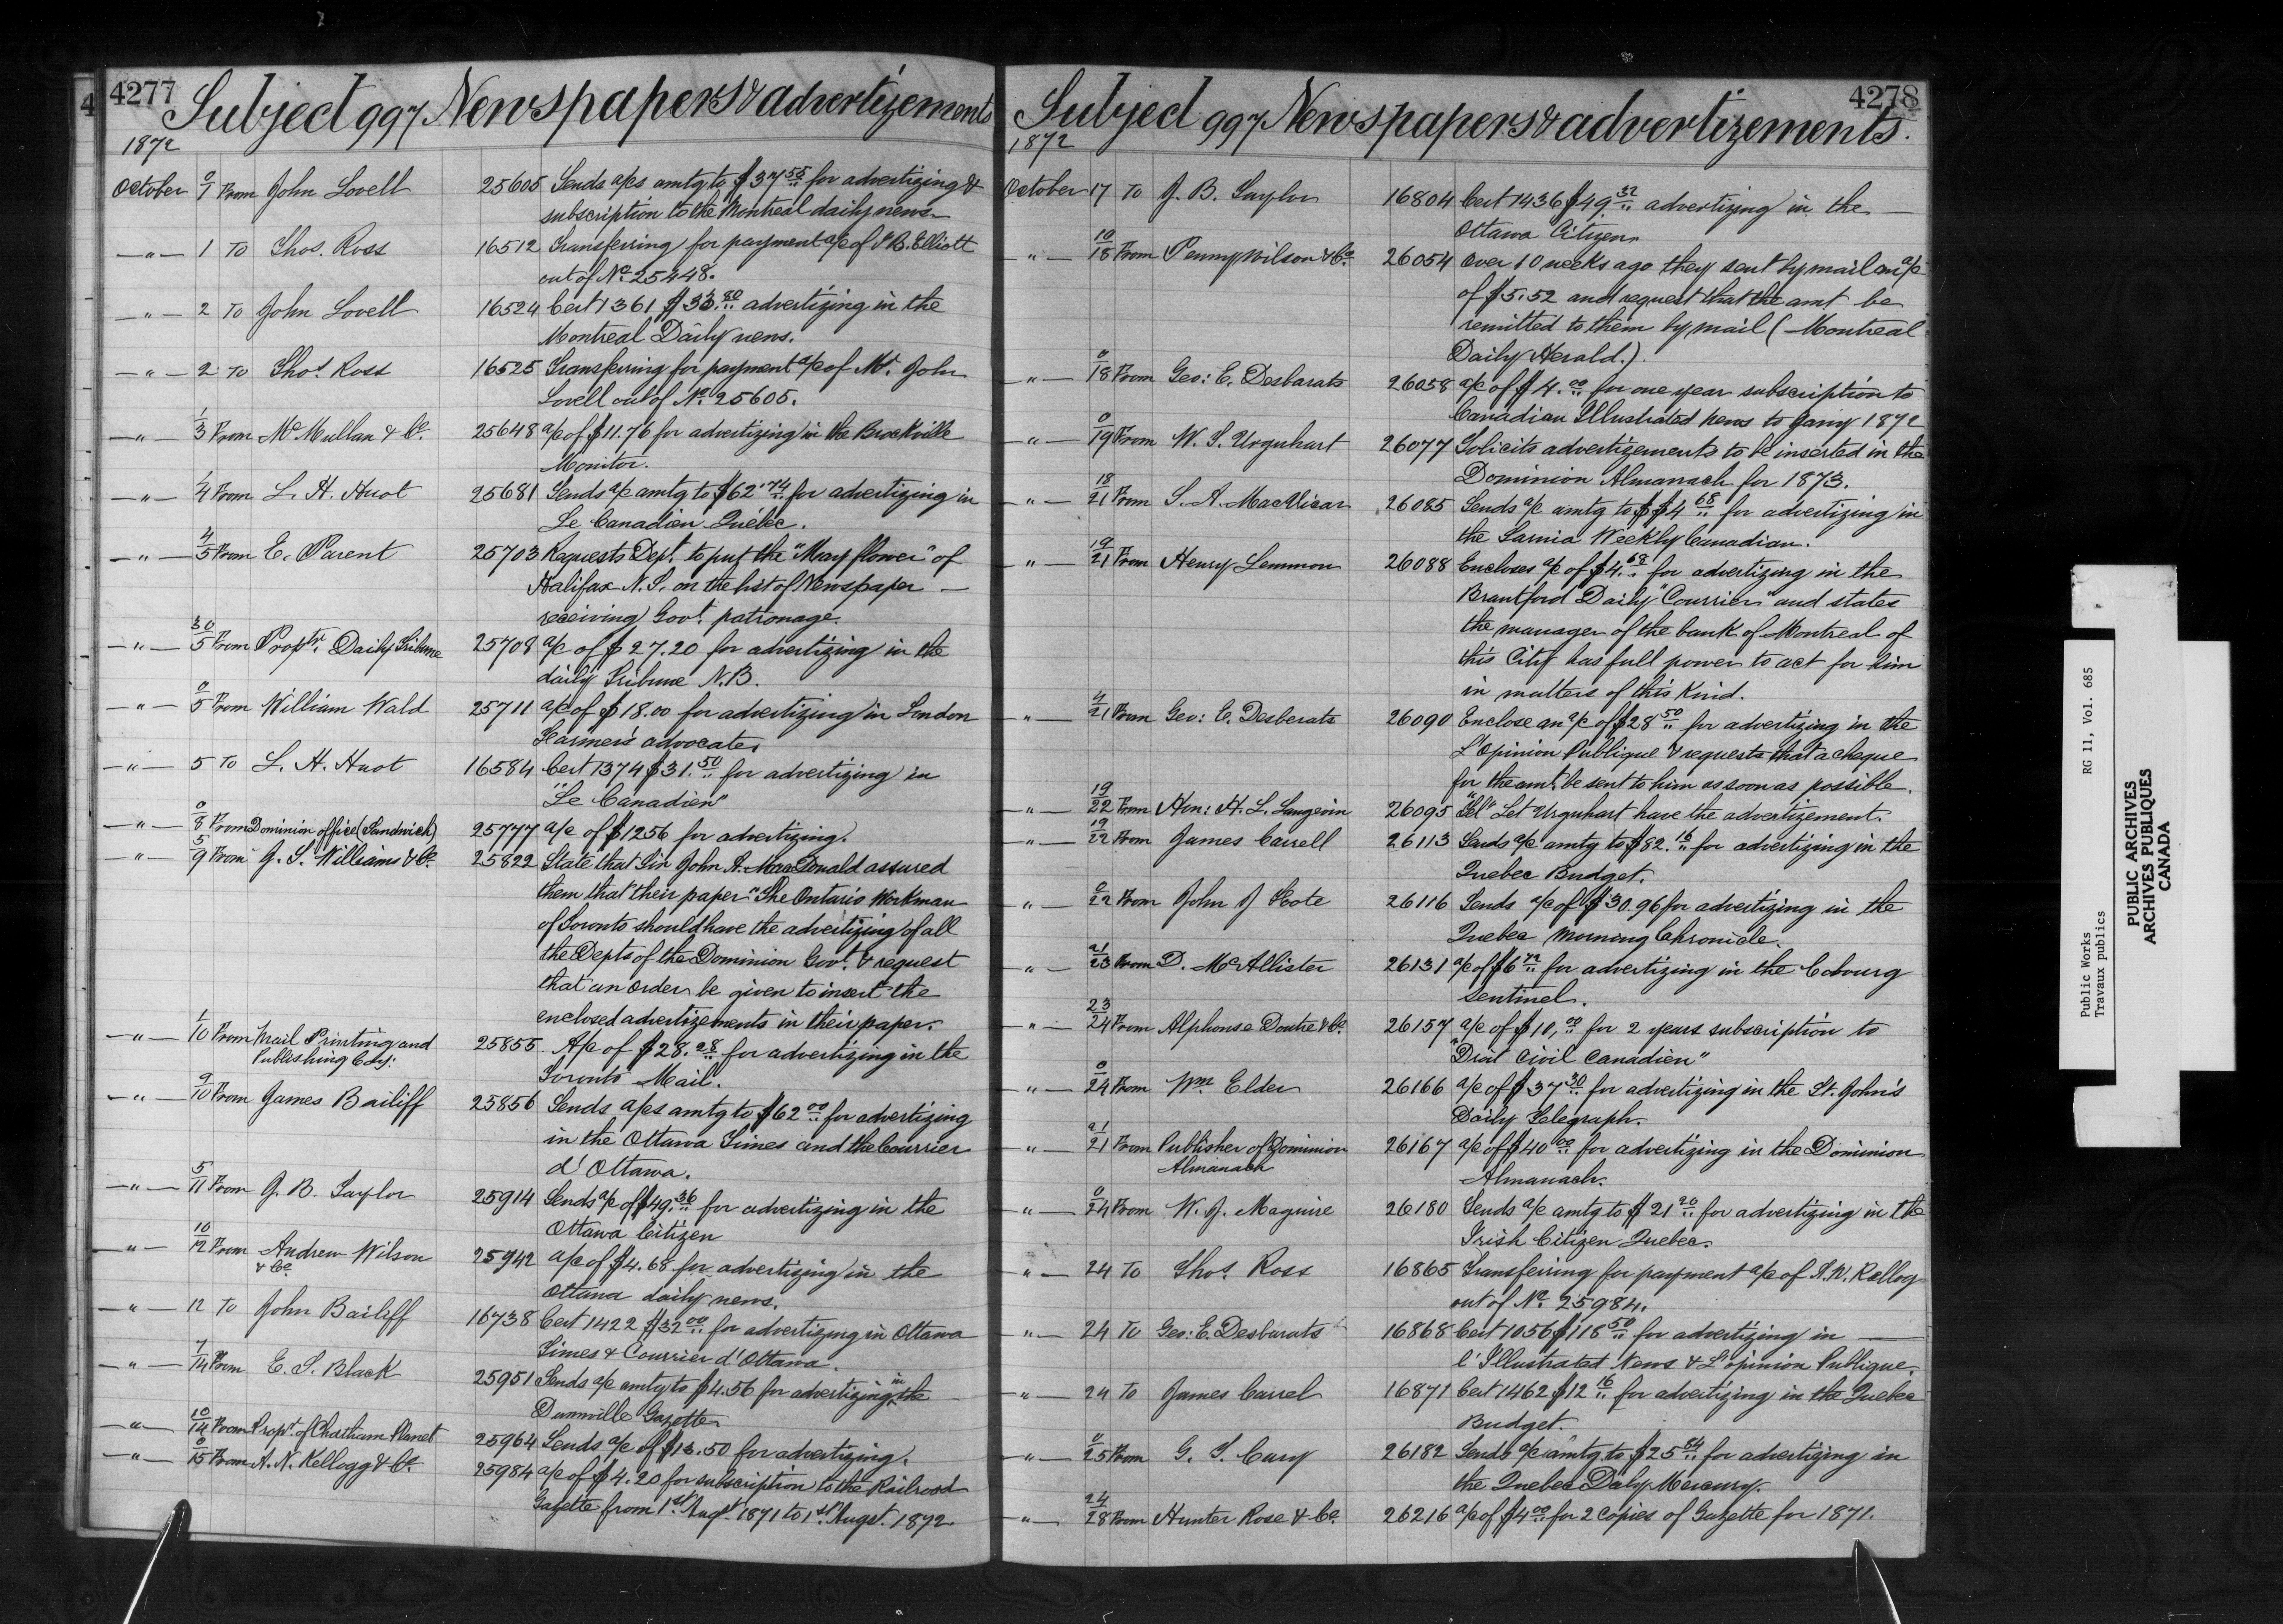 4277
Subject 997 Newspapers & advertizements
1872
October 0/1 From John Lovell 25605 Sends a/cs amtg to $37.55 for advertizing &
subscription to the Montreal daily news.
—"— 1 To Thos. Ross 16512 Transferring for payment a/c of J.B. Elliott
out of No. 25448.
—"— 2 To John Lovell 16524 Cert 1361 $33.80 advertizing in the
Montreal Daily news.
—"— 2 To Thos. Ross 16525 Transferring for payment a/c of Mr. John
Lovell out of No. 25605.
—"— 1/3 From McMullan & Co. 25648 a/c of $11.76 for advertizing in the Brockville
Monitor.
—"— 1/4 From L. H. Huot 25681 Sends a/c amtg to $62.74 for advertizing in
Le Canadien Québéc.
—"— 4/5 From E. Parent 25703 Requests Dept. to put the "May flower" of
Halifax N.S. on the list of Newspaper —
receiving Govt. patronage.
—"— 30/5 From Proptr. Daily Tribune 25708 a/c of $27.20 for advertizing in the
daily Tribune N.B.
—"— 0/5 From William Wald 25711 a/c of $18.00 for advertizing in London
Farmer's advocate.
—"— 5 To L. H. Huot 16584 Cert 1374 $31.50 for advertizing in
"Le Canadien"
—"— 0/8 From Dominion office (Sandwich) 25777 a/c of $12.56 for advertizing.
—"— 5/9 From J. S. Williams & Co. 25822 State that Sir John A. MacDonald assured
them that their paper "The Ontario Workman
of Toronto should have the advertizing of all
the Depts of the Dominion Govt. & request
that an order be given to insert the
enclosed advertizements in their paper.
—"— 1/10 From Mail Printing and 25855 A/c of $28.28 for advertizing in the
Publishing Coy:
Toronto Mail.
—"— 9/10 From James Bailiff 25856 Sends a/cs amtg to $62.00 for advertizing
in the Ottawa Times and the Courrier
d'Ottawa.
—"— 5/11 From J. B. Taylor 25914 Sends a/c of $49.36 for advertizing in the
Ottawa Citizen
—"— 10/12 From Andrew Wilson 25942 a/c of $4.68 for advertizing in the
& Co.
Ottawa daily news.
—"— 12 To John Bailiff 16738 Cert 1422 $32.00 for advertizing in Ottawa
Times & Courrier d'Ottawa.
—"— 7/14 From E. S. Black 25951 Sends a/c amtg to $4.56 for advertizing in the
Dunnville Gazette
—"— 10/14 From Propt. of Chatham Planet 25964 Sends a/c of $13.50 for advertizing.
—"— 0/15 From A. N. Kellogg & Co. 25984 a/c of $4.20 for subscription to the Railroad
Gazette from 1st Augt. 1871 to 1st Augst. 1872
4278
Subject 997 Newspapers & advertizements.
1872
October 17 To J. B. Taylor 16804 Cert 1436 $49.32 advertizing in the —
Ottawa Citizen
—"— 10/18 From Penny Wilson & Co. 26054 Over 10 weeks ago they sent by mail an a/c
of $5.52 and request that the amt be
remitted to them by mail (Montreal
Daily Herald.).
—"— 0/18 From Geo: E. Desbarats 26058 a/c of $4.00 for one year subscription to
Canadian Illustrated news to Jany 1872
—"— 0/19 From W. S. Urquhart 26077 Solicits advertizements to be inserted in the
Dominion Almanach for 1873.
—"— 18/21 From S. A. MacVicar 26085 Sends a/c amtg to $ $4.68 for advertizing in
the Sarnia Weekly Canadian.
—"— 19/21 From Henry Lemmon 26088 Encloses a/c of $4.68 for advertizing in the
Brantford "Daily Courrier" and states
the manager of the bank of Montreal of
this City has full power to act for him
in matters of this Kind.
—"— 4/21 From Geo: E. Desberats 26090 Enclose an a/c of $28.50 for advertizing in the
L'Opinion Publique & requests that a cheque
for the amt. be sent to him as soon as possible.
—"— 19/22 From Hon: H. L. Langevin 26095 "Tel" Let Urquhart have the advertizement.
—"— 19/22 From James Carrell 26113 Sends a/c amtg to $82.16 for advertizing in the
Quebec Budget.
—"— 0/22 From John J Foote 26116 Sends a/c of $30.96 for advertizing in the
Quebec Morning Chronicle.
—"— 21/23 From D. McAllister 26131 a/c of $6.72 for advertizing in the Cobourg
Sentinel.
—"— 23/24 From Alphonse Doutre & Co. 26157 a/c of $10.00 for 2 years subscription to
"Droit Civil Canadien"
—"— 0/24 From Wm Elder 26166 a/c of $37.30 for advertizing in the St. John's
Daily Telegraph.
—"— 21/21 From Publisher of Dominion 26167 a/c of $40.00 for advertizing in the Dominion
Almanach
Almanach.
—"— 0/24 From W. J. Maguire 26180 Sends a/c amtg to $21.20 for advertizing in the
Irish Citizen Quebec.
—"— 24 To Thos. Ross 16865 Transferring for payment a/c of A.N. Kellog
out of No. 25984.
—"— 24 To Geo: E. Desbarats 16868 Cert 1056 $118.50 for advertizing in —
l'Illustrated News & L'opinion Publique.
—"— 24 To James Carrel 16871 Cert 1462 $12.16 for advertizing in the Quebec
Budget.
—"— 0/25 From G. T. Cary 26182 Sends a/c amtg to $25.84 for advertizing in
the Quebec Daly Mercury.
—"— 24/28 From Hunter Rose & Co. 26216 a/c of $4.00 for 2 Copies of Gazette for 1871.
Public Works
Travaux publics
RG 11, Vol. 685
PUBLIC ARCHIVES
ARCHIVES PUBLIQUES
CANADA